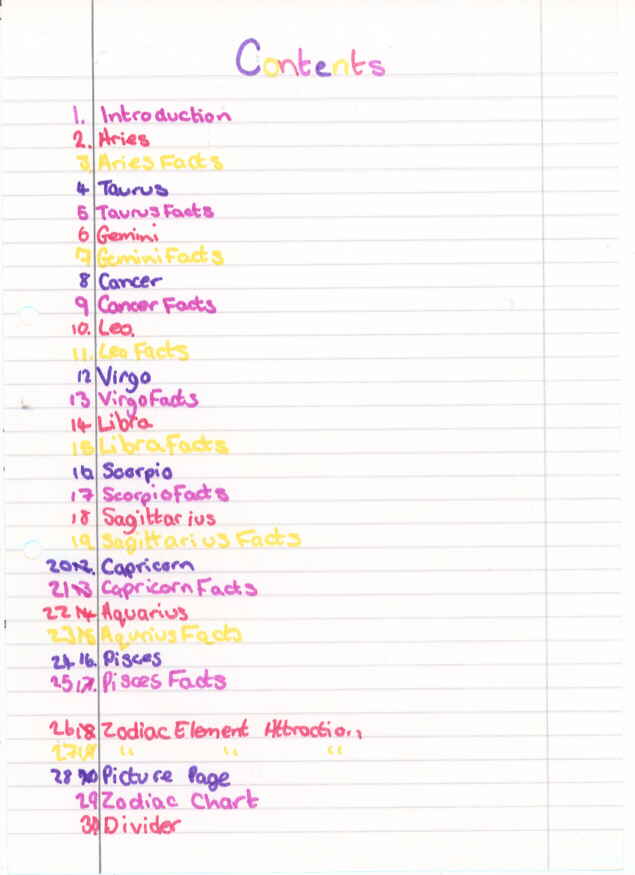 Contents
1. Introduction
2. Aries
3. Aries Facts
4 Taurus
5 Taurus Facts
6 Gemini
7 Gemini Facts
8 Cancer
9 Cancer Facts
10. Leo.
11. Leo Facts
12 Virgo
13 Virgo Facts
14 Libra
15 Libra Facts
16 Scorpio
17 Scorpio Facts
18 Sagittarius
19 Sagittarius Facts
20 Capricorn
21 Capricorn Facts
22 Aquarius
23 Aqurius Facts
24 Pisces
25 Pisces Facts
26 Zodiac Element Attraction
27 " " "
28 Picture Page
29 Zodiac Chart
30 Divider